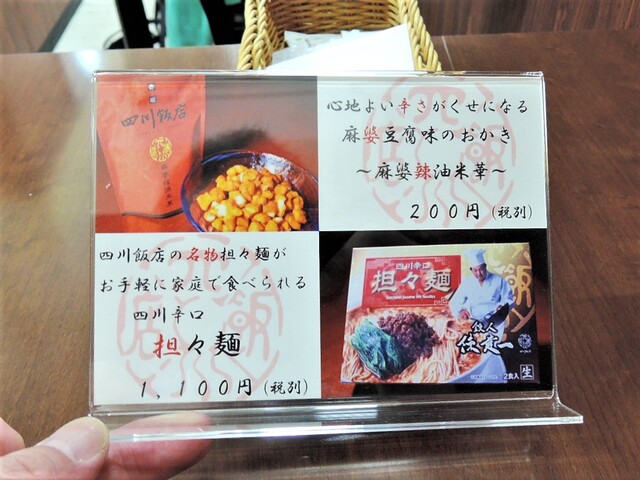 四川飯店
心地よい辛さがくせになる
麻婆豆腐味のおかき
～麻婆辣油米華～
200円（税別）
四川飯店の名物担々麺が
お手軽に家庭で食べられる
四川辛口
担々麺
1,100円（税別）
四川辛口
担々麺
鉄人
陳建一
2食入
生